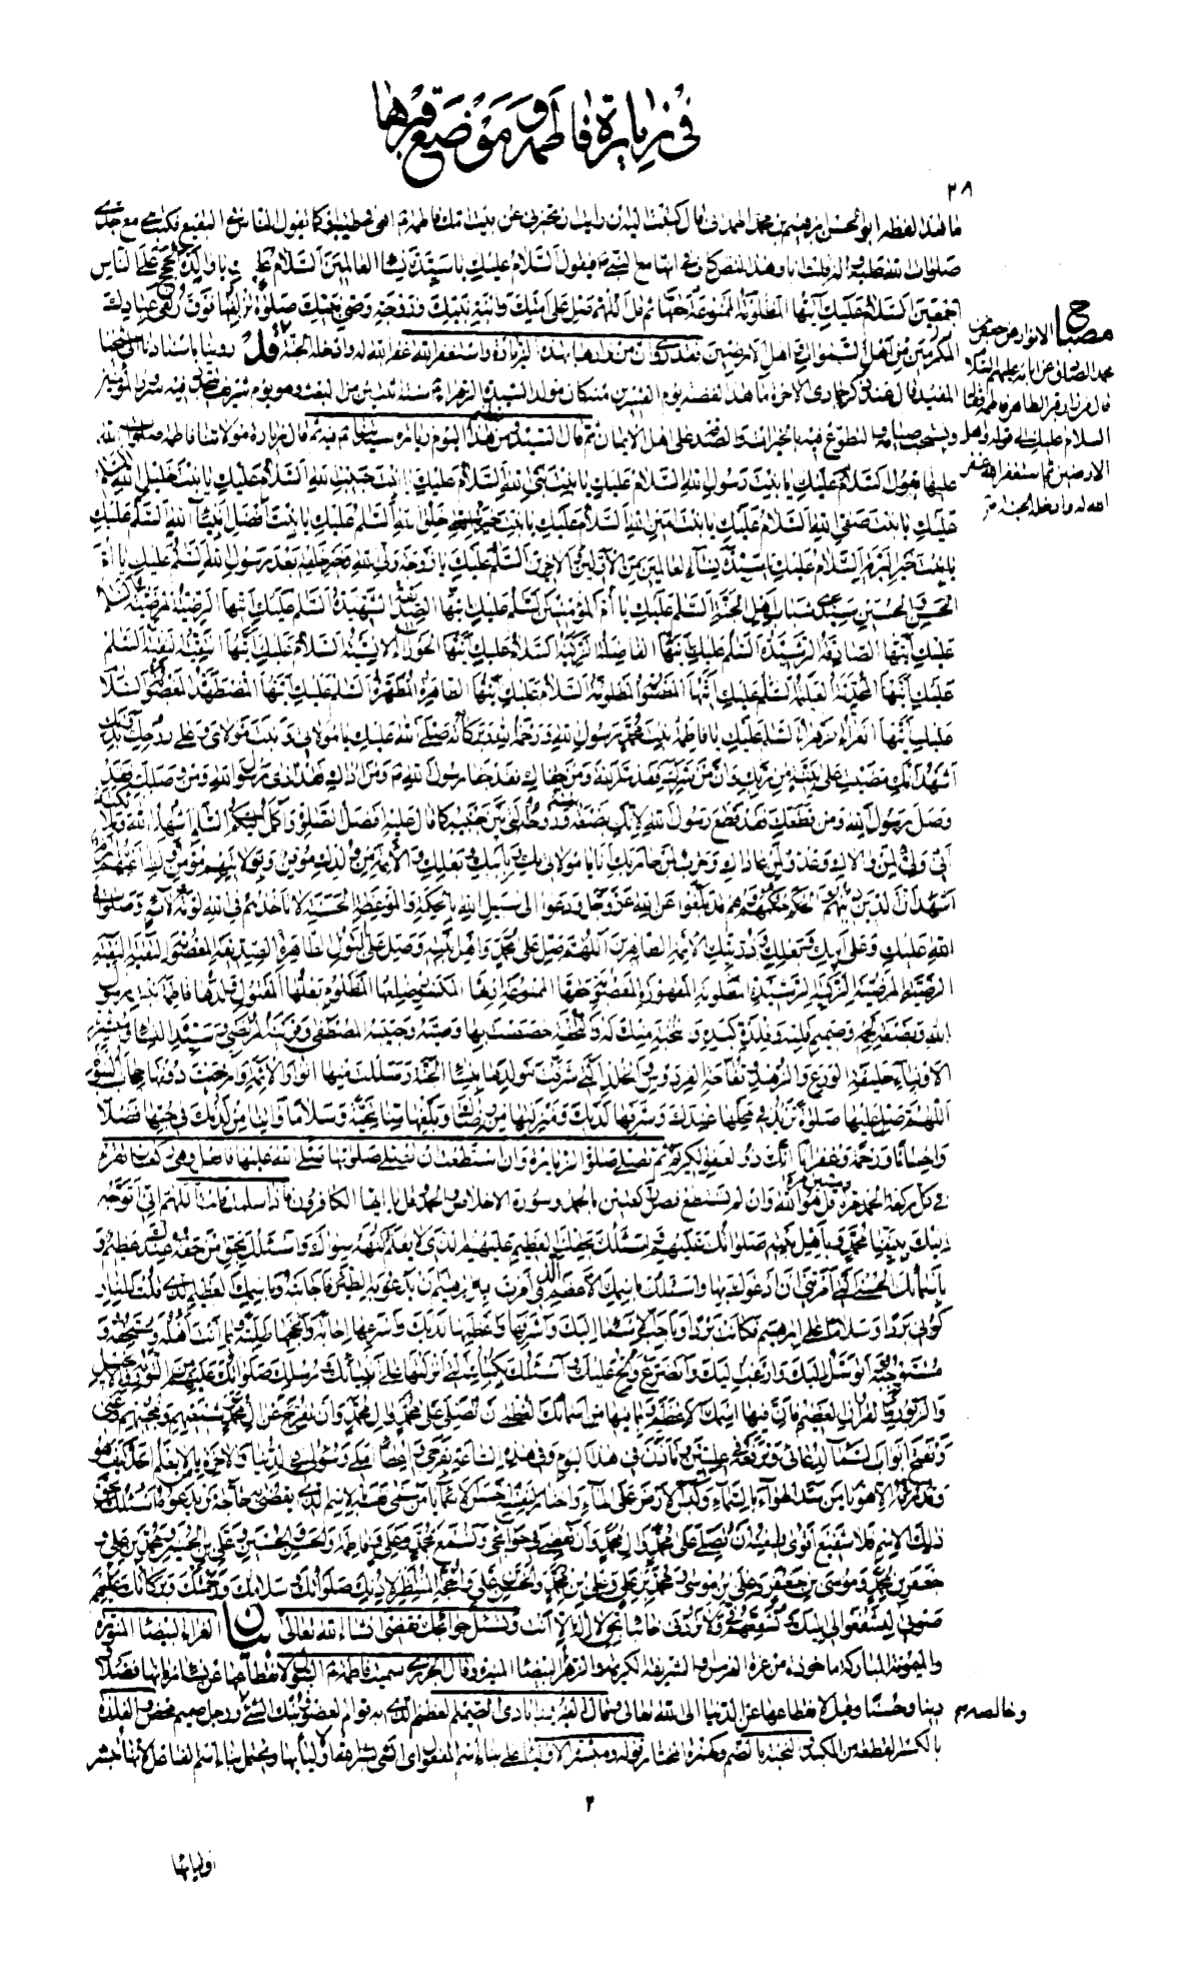 في زيارة فاطمة وموضع قبرها
٣٨
ما هذا لفظه ابو الحسن ابرهيم بن محمد الهمداني قال كتبت اليه ان رايت ان تخبرني عن بيت امك فاطمة اهي في طيبة او كما يقول الناس في البقيع فكتب هي مع جدي
صلوات الله عليه وآله قلت انا وهذا النص كاف في انها مع النبي فيقول السلام عليك يا سيدة نساء العالمين السلام عليك يا والدة الحجج على الناس
اجمعين السلام عليك ايتها المظلومة الممنوعة حقها ثم قل اللهم صل على امتك وابنة نبيك وزوجة وصي نبيك صلوة تزلفها فوق زلفى عبادك
المكرمين من اهل السموات واهل الارضين فقد روي ان من زارها بهذه الزيارة واستغفر الله غفر الله له وادخله الجنة قل روينا باسنادنا الى شيخنا
المفيد قال عند ذكر جمادى الاخرة ما هذا لفظه يوم العشرين منه كان مولد السيدة الزهراء سنة اثنتين من المبعث وهو يوم شريف يتجدد فيه سرور المؤمنين
ويستحب صيامه والتطوع فيه بالخيرات والصدقة على اهل الايمان ثم قال السيد من هذا اليوم زيارة سيدتنا فيه ثم قال زيارة مولاتنا فاطمة صلوات الله
عليها تقول السلام عليك يا بنت رسول الله السلام عليك يا بنت نبي الله السلام عليك يا بنت حبيب الله السلام عليك يا بنت خليل الله السلام
عليك يا بنت صفي الله السلام عليك يا بنت امين الله السلام عليك يا بنت خير خلق الله السلام عليك يا بنت افضل انبياء الله السلام عليك
يا بنت خير البرية السلام عليك يا سيدة نساء العالمين من الاولين والاخرين السلام عليك يا زوجة ولي الله وخير خلقه بعد رسول الله السلام عليك يا ام
الحسن والحسين سيدي شباب اهل الجنة السلام عليك يا ام المؤمنين السلام عليك ايتها الصديقة الشهيدة السلام عليك ايتها الرضية المرضية السلام
عليك ايتها الصادقة الرشيدة السلام عليك ايتها الفاضلة الزكية السلام عليك ايتها الحوراء الانسية السلام عليك ايتها التقية النقية السلام
عليك ايتها المحدثة العليمة السلام عليك ايتها المعصومة المظلومة السلام عليك ايتها الطاهرة المطهرة السلام عليك ايتها المضطهدة المغصوبة السلام
عليك ايتها الغراء الزهراء السلام عليك يا فاطمة بنت محمد رسول الله ورحمة الله وبركاته صلى الله عليك يا مولاتي وبنت مولاي وعلى روحك وبدنك
اشهد انك مضيت على بينة من ربك وان من سرك فقد سر رسول الله ومن جفاك فقد جفا رسول الله ومن اذاك فقد اذى رسول الله ومن وصلك فقد
وصل رسول الله ومن قطعك فقد قطع رسول الله لانك بضعة منه وروحه التي بين جنبيه كما قال عليه افضل الصلوة واكمل السلام اشهد الله وملائكته
اني ولي لمن والاك وعدو لمن عاداك وحرب لمن حاربك انا يا مولاتي بك وبابيك وبعلك والائمة من ولدك موقن وبولايتهم مؤمن
اشهد ان الدين دينهم والحكم حكمهم وانهم قد بلغوا عن الله عز وجل ودعوا الى سبيل الله بالحكمة والموعظة الحسنة لا تاخذهم في الله لومة لائم وصلوات
الله عليك وعلى ابيك وبعلك وذريتك الائمة الطاهرين اللهم صل على محمد واهل بيته وصل على البتول الطاهرة الصديقة المعصومة التقية النقية
الرضية المرضية الزكية الرشيدة المظلومة المقهورة المغصوبة حقها الممنوعة ارثها المكسور ضلعها المظلوم بعلها المقتول ولدها فاطمة بنت رسول
الله وبضعة لحمه وصميم قلبه وفلذة كبده والنخبة منك له والتحفة خصصت بها وصيه وحبيبة المصطفى وقرينة المرتضى وسيدة النساء ومبشرة
الاولياء حليفة الورع والزهد وتفاحة الفردوس والخلد التي شرفت مولدها بنساء الجنة وسللت منها انوار الائمة وارخيت دونها حجاب النبوة
اللهم صل عليها صلوة تزيد في محلها عندك وشرفها لديك ومنزلتها من رضاك وبلغها منا تحية وسلاما وآتنا من لدنك في حبها فضلا
واحسانا ورحمة وغفرانا انك ذو العفو الكريم ثم تصلي صلوة الزيارة وان استطعت ان تصلي صلوتها صلى الله عليها فافعل وهي ركعتان تقرأ
في كل ركعة الحمد مرة وستين مرة قل هو الله وان لم تستطع فصل ركعتين بالحمد وسورة الاخلاص والحمد وقل يا ايها الكافرون فاذا سلمت قلت اللهم اني اتوجه
اليك بنبينا محمد وباهل بيته صلواتك عليهم واسئلك بحقك العظيم عليهم الذي لا يعلم كنهه سواك واسئلك بحق من حقه عندك عظيم و
باسمائك الحسنى التي امرتني ان ادعوك بها واسئلك باسمك الاعظم الذي امرت به ابرهيم ان يدعو به الطير فاجابته وباسمك العظيم الذي قلت للنار
كوني بردا وسلاما على ابرهيم فكانت بردا وباحب الاسماء اليك واشرفها واعظمها لديك واسرعها اجابة وانجحها طلبة وبما انت اهله ومستحقه و
مستوجبه واتوسل اليك وارغب اليك واتضرع والح عليك واسئلك بكتبك التي انزلتها على انبيائك ورسلك صلواتك عليهم من التورية والانجيل
والزبور والقران العظيم فان فيها اسمك الاعظم وبما فيها من اسمائك العظمى ان تصلي على محمد وال محمد وان تفرج عن ال محمد وشيعتهم ومحبيهم وعني
وتفتح ابواب السماء لدعائي وترفعه في عليين وتاذن في هذا اليوم وفي هذه الساعة بفرجي واعطاء املي وسؤلي في الدنيا والاخرة يا من لا يعلم احد كيف هو
وقدرته الا هو يا من سد الهواء بالسماء وكبس الارض على الماء واختار لنفسه احسن الاسماء يا من سمى نفسه بالاسم الذي يقضى به حاجة من يدعوه اسئلك بحق
ذلك الاسم فلا شفيع اقوى لي منه ان تصلي على محمد وال محمد وان تقضي لي حوائجي وتسمع محمدا وعليا وفاطمة والحسن والحسين وعلي بن الحسين ومحمد بن علي و
جعفر بن محمد وموسى بن جعفر وعلي بن موسى ومحمد بن علي وعلي بن محمد والحسن بن علي والحجة المنتظر لاذنك صلواتك وسلامك ورحمتك وبركاتك عليهم
صوتي ليشفعوا لي اليك وتشفعهم في ولا تردني خائبا بحق لا اله الا انت وتسئل حوائجك تقضى انشاء الله تعالى بيان الغراء البيضاء المنورة
والميمونة المباركة ماخوذة من غرة الفرس والشريفة الكريمة والزهراء البيضاء المنيرة وقال الجزري سميت فاطمة البتول لانقطاعها عن نساء زمانها فضلا و
دينا وحسنا وقيل لانقطاعها عن الدنيا الى الله تعالى وقال الفيروزابادي الصميم العظم الذي به قوام العضو وبنك الشيء وخالصه ورجل صميم محض والفلذة
بالكسر القطعة من الكبد والنخبة بالضم وكهمزة المختار قوله ومبشرة الاولياء على بناء اسم المفعول اي التي بشر الله الاولياء بها ويحتمل بناء اسم الفاعل لانها تبشر
مصباح الانوار عن جعفر بن
محمد الصادق عن ابائه عليهم السلام
قال من زار قبر الطاهرة فاطمة فقال
السلام عليك الى قوله واهل
الارضين ثم استغفر الله غفر
الله له وادخله الجنة
وخالصه
٢
اوليائها